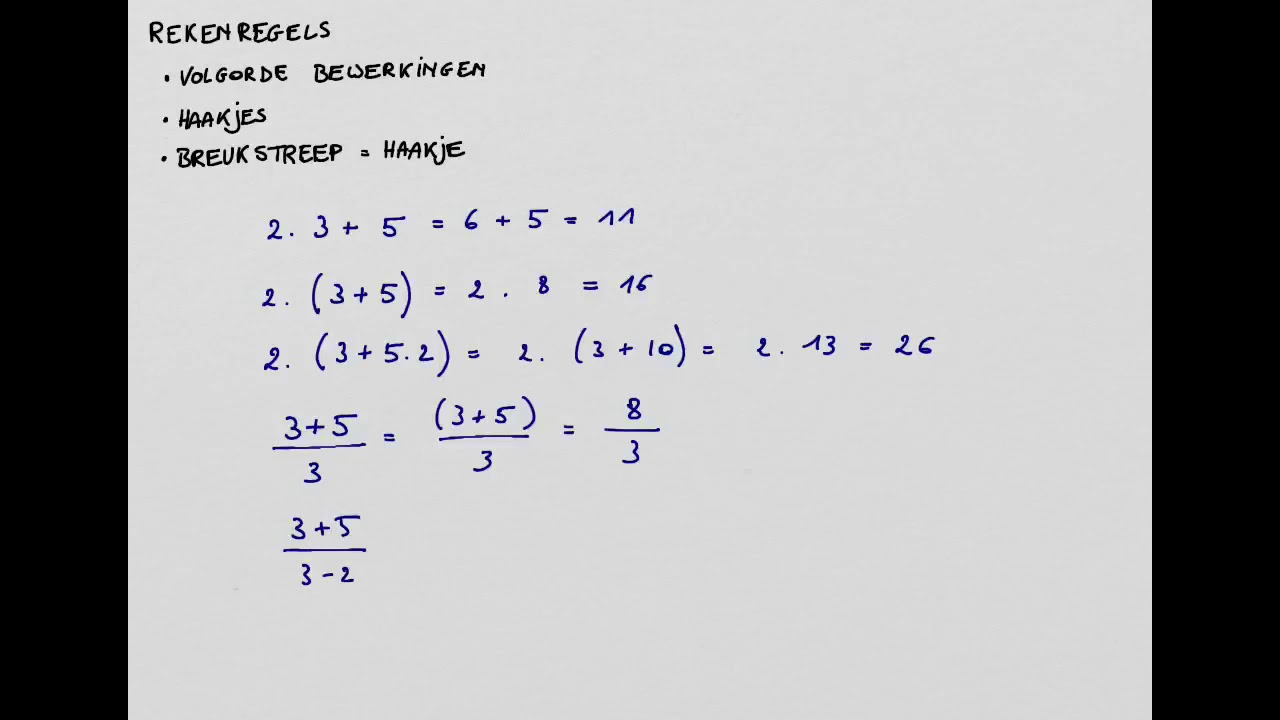 REKENREGELS
• VOLGORDE BEWERKINGEN
• HAAKJES
• BREUKSTREEP = HAAKJE
2 . 3 + 5 = 6 + 5 = 11
2 . (3 + 5) = 2 . 8 = 16
2 . (3 + 5 . 2) = 2 . (3 + 10) = 2 . 13 = 26
3 + 5 / 3 = (3 + 5) / 3 = 8 / 3
3 + 5 / 3 - 2